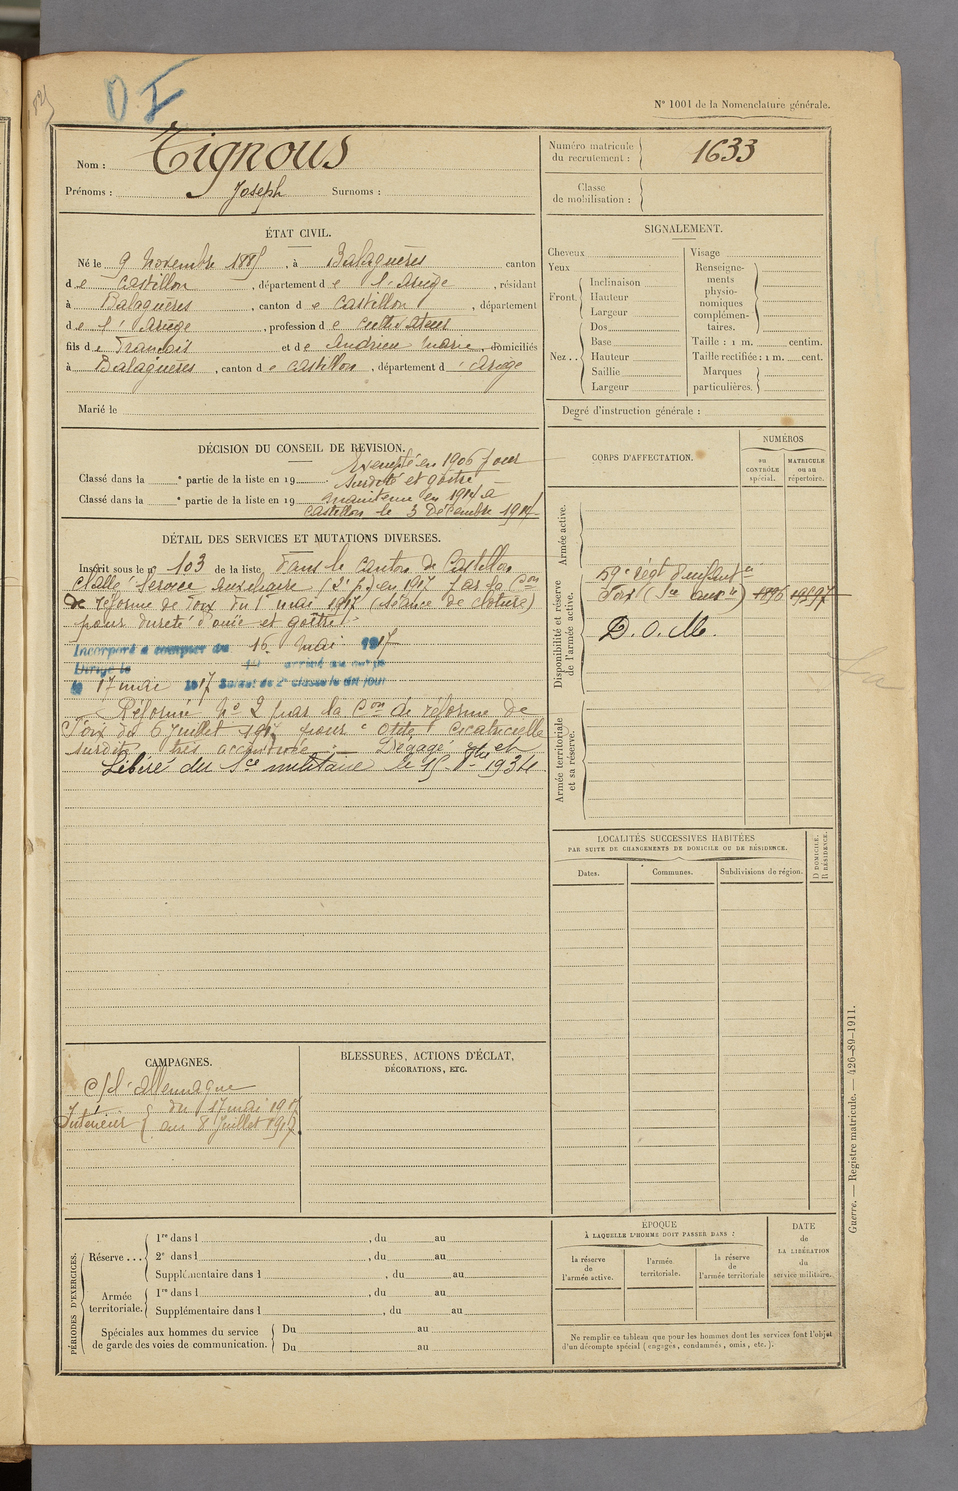 D I
N° 1001 de la Nomenclature générale.
Nom : Tignous
Prénoms : Joseph Surnoms :
Numéro matricule du recrutement : 1633
Classe de mobilisation :
ÉTAT CIVIL.
Né le 9 Novembre 1885, à Balaguères canton
de Castillon, département de l'Ariège, résidant
à Balaguères, canton de Castillon, département
de l'Ariège, profession de cultivateur
fils de François et de Andrieu Marie, domiciliés
à Balaguères, canton de Castillon, département d'Ariège
Marié le
SIGNALEMENT.
Cheveux
Yeux
Front. Inclinaison
Hauteur
Largeur
Nez.. Dos
Base
Hauteur
Saillie
Largeur
Visage
Renseigne-
ments
physio-
nomiques
complémen-
taires.
Taille : 1 m. centim.
Taille rectifiée : 1 m. cent.
Marques
particulières.
Degré d'instruction générale :
DÉCISION DU CONSEIL DE REVISION.
Exempté en 1906 pour
Classé dans la e partie de la liste en 19 . surdité et goître
Classé dans la e partie de la liste en 19 maintenu en 1914 à
Castillon le 3 Décembre 1914
DÉTAIL DES SERVICES ET MUTATIONS DIVERSES.
Inscrit sous le n° 103 de la liste dans le canton de Castillon
Classé Service Auxiliaire (2e p.) en 1917 par la Con
de réforme de Foix du 1er mai 1917 (séance de clôture)
pour dureté d'ouïe et goître.
Incorporé à compter du 16 mai 1917
Dirigé le arrivé au corps
le 17 mai 1917 Soldat de 2e classe le dit jour
Réformé N° 2 par la Con de réforme de
Foix du 6 juillet 1917 pour "otite cicatricielle
surdité très accentuée". Dégagé et
Libéré du Sce militaire le 15 8bre 1934
CORPS D'AFFECTATION.
NUMÉROS
au CONTRÔLE spécial.
MATRICULE ou au répertoire.
Armée active.
Disponibilité et réserve de l'armée active.
59e régt d'infant ie
Foix (Sce auxre) 1896
D. O. M.
Armée territoriale et sa réserve.
LOCALITÉS SUCCESSIVES HABITÉES
PAR SUITE DE CHANGEMENTS DE DOMICILE OU DE RÉSIDENCE.
Dates. Communes. Subdivisions de région. D DOMICILE. R RÉSIDENCE.
CAMPAGNES.
c/ l'allemagne
Intérieur du 17 mai 1917
au 8 Juillet 1917
BLESSURES, ACTIONS D'ÉCLAT,
DÉCORATIONS, ETC.
PÉRIODES D'EXERCICES.
Réserve ... 1re dans l , du au
2e dans l , du au
Supplémentaire dans l , du au
Armée territoriale. 1re dans l , du au
Supplémentaire dans l , du au
Spéciales aux hommes du service
de garde des voies de communication. Du au
Du au
ÉPOQUE
À LAQUELLE L'HOMME DOIT PASSER DANS :
la réserve de l'armée active.
l'armée territoriale.
la réserve de l'armée territoriale
DATE de LA LIBÉRATION du service militaire.
Ne remplir ce tableau que pour les hommes dont les services font l'objet
d'un décompte spécial (engagés, condamnés, omis, etc.).
Guerre. — Registre matricule. — 426-89-1911.